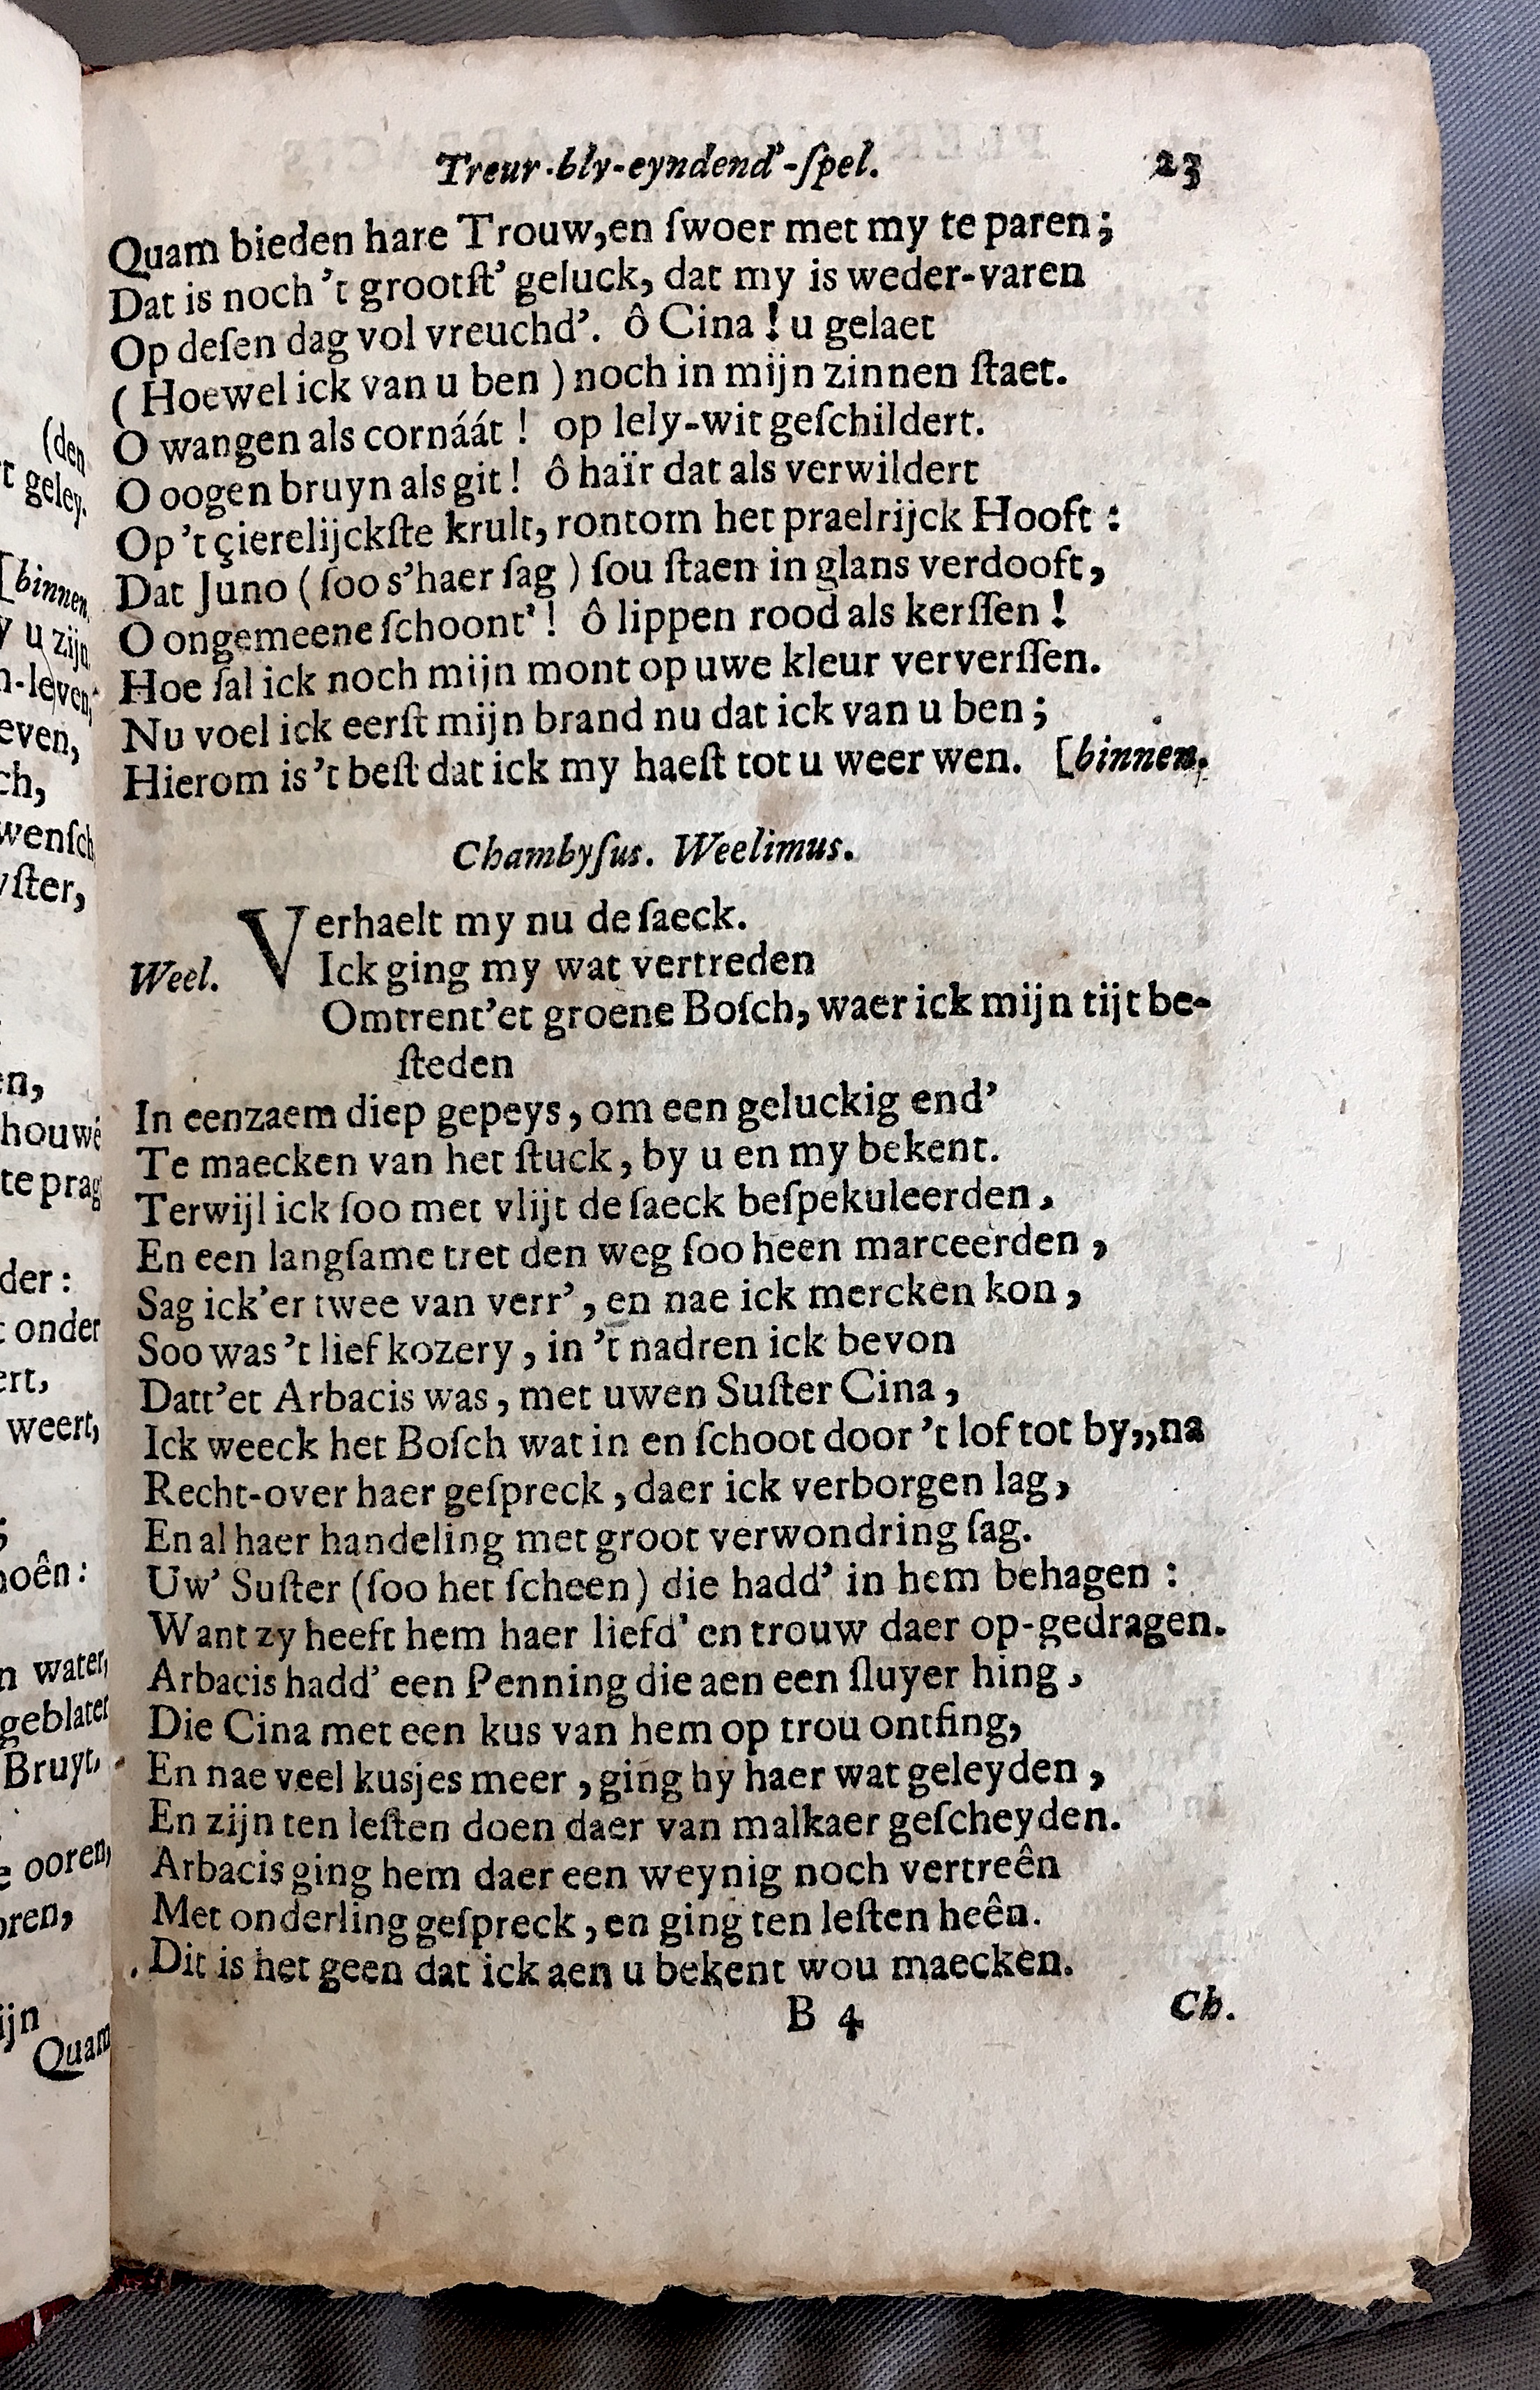 Treur-bly-eyndend'-ſpel. 23
Quam bieden hare Trouw,en ſwoer met my te paren;
Dat is noch 't grootſt' geluck, dat my is weder-varen
Op deſen dag vol vreuchd'. ô Cina ! u gelaet
( Hoewel ick van u ben ) noch in mijn zinnen ſtaet.
O wangen als cornáát ! op lely-wit geſchildert.
O oogen bruyn als git ! ô haïr dat als verwildert
Op 't çierelijckſte krult, rontom het praelrijck Hooft :
Dat Juno ( ſoo s'haer ſag ) ſou ſtaen in glans verdooft,
O ongemeene ſchoont' ! ô lippen rood als kerſſen !
Hoe ſal ick noch mijn mont op uwe kleur ververſſen.
Nu voel ick eerſt mijn brand nu dat ick van u ben ;
Hierom is 't beſt dat ick my haeſt tot u weer wen. [binnen.
Chambyſus. Weelimus.
Verhaelt my nu de ſaeck.
Weel. Ick ging my wat vertreden
Omtrent'et groene Boſch, waer ick mijn tijt be-
ſteden
In eenzaem diep gepeys, om een geluckig end'
Te maecken van het ſtuck, by u en my bekent.
Terwijl ick ſoo met vlijt de ſaeck beſpekuleerden,
En een langſame tret den weg ſoo heen marceerden,
Sag ick'er twee van verr', en nae ick mercken kon,
Soo was 't lief kozery, in 't nadren ick bevon
Datt'et Arbacis was, met uwen Suſter Cina,
Ick weeck het Boſch wat in en ſchoot door 't lof tot by,,na
Recht-over haer geſpreck, daer ick verborgen lag,
En al haer handeling met groot verwondring ſag.
Uw' Suſter (ſoo het ſcheen) die hadd' in hem behagen :
Want zy heeft hem haer liefd' en trouw daer op-gedragen.
Arbacis hadd' een Penning die aen een ſluyer hing,
Die Cina met een kus van hem op trou ontfing,
En nae veel kusjes meer, ging hy haer wat geleyden,
En zijn ten leſten doen daer van malkaer geſcheyden.
Arbacis ging hem daer een weynig noch vertreên
Met onderling geſpreck, en ging ten leſten heên.
Dit is het geen dat ick aen u bekent wou maecken.
B 4 Ch.
(den
't geley.
[binnen.
u zijn
n-leven,
even,
ch,
wenſch
ſter,
en,
houwē
te prag
der :
onder
ert,
weert,
oên :
n water,
geblater
Bruyt,
ooren,
oren,
ijn
Quam